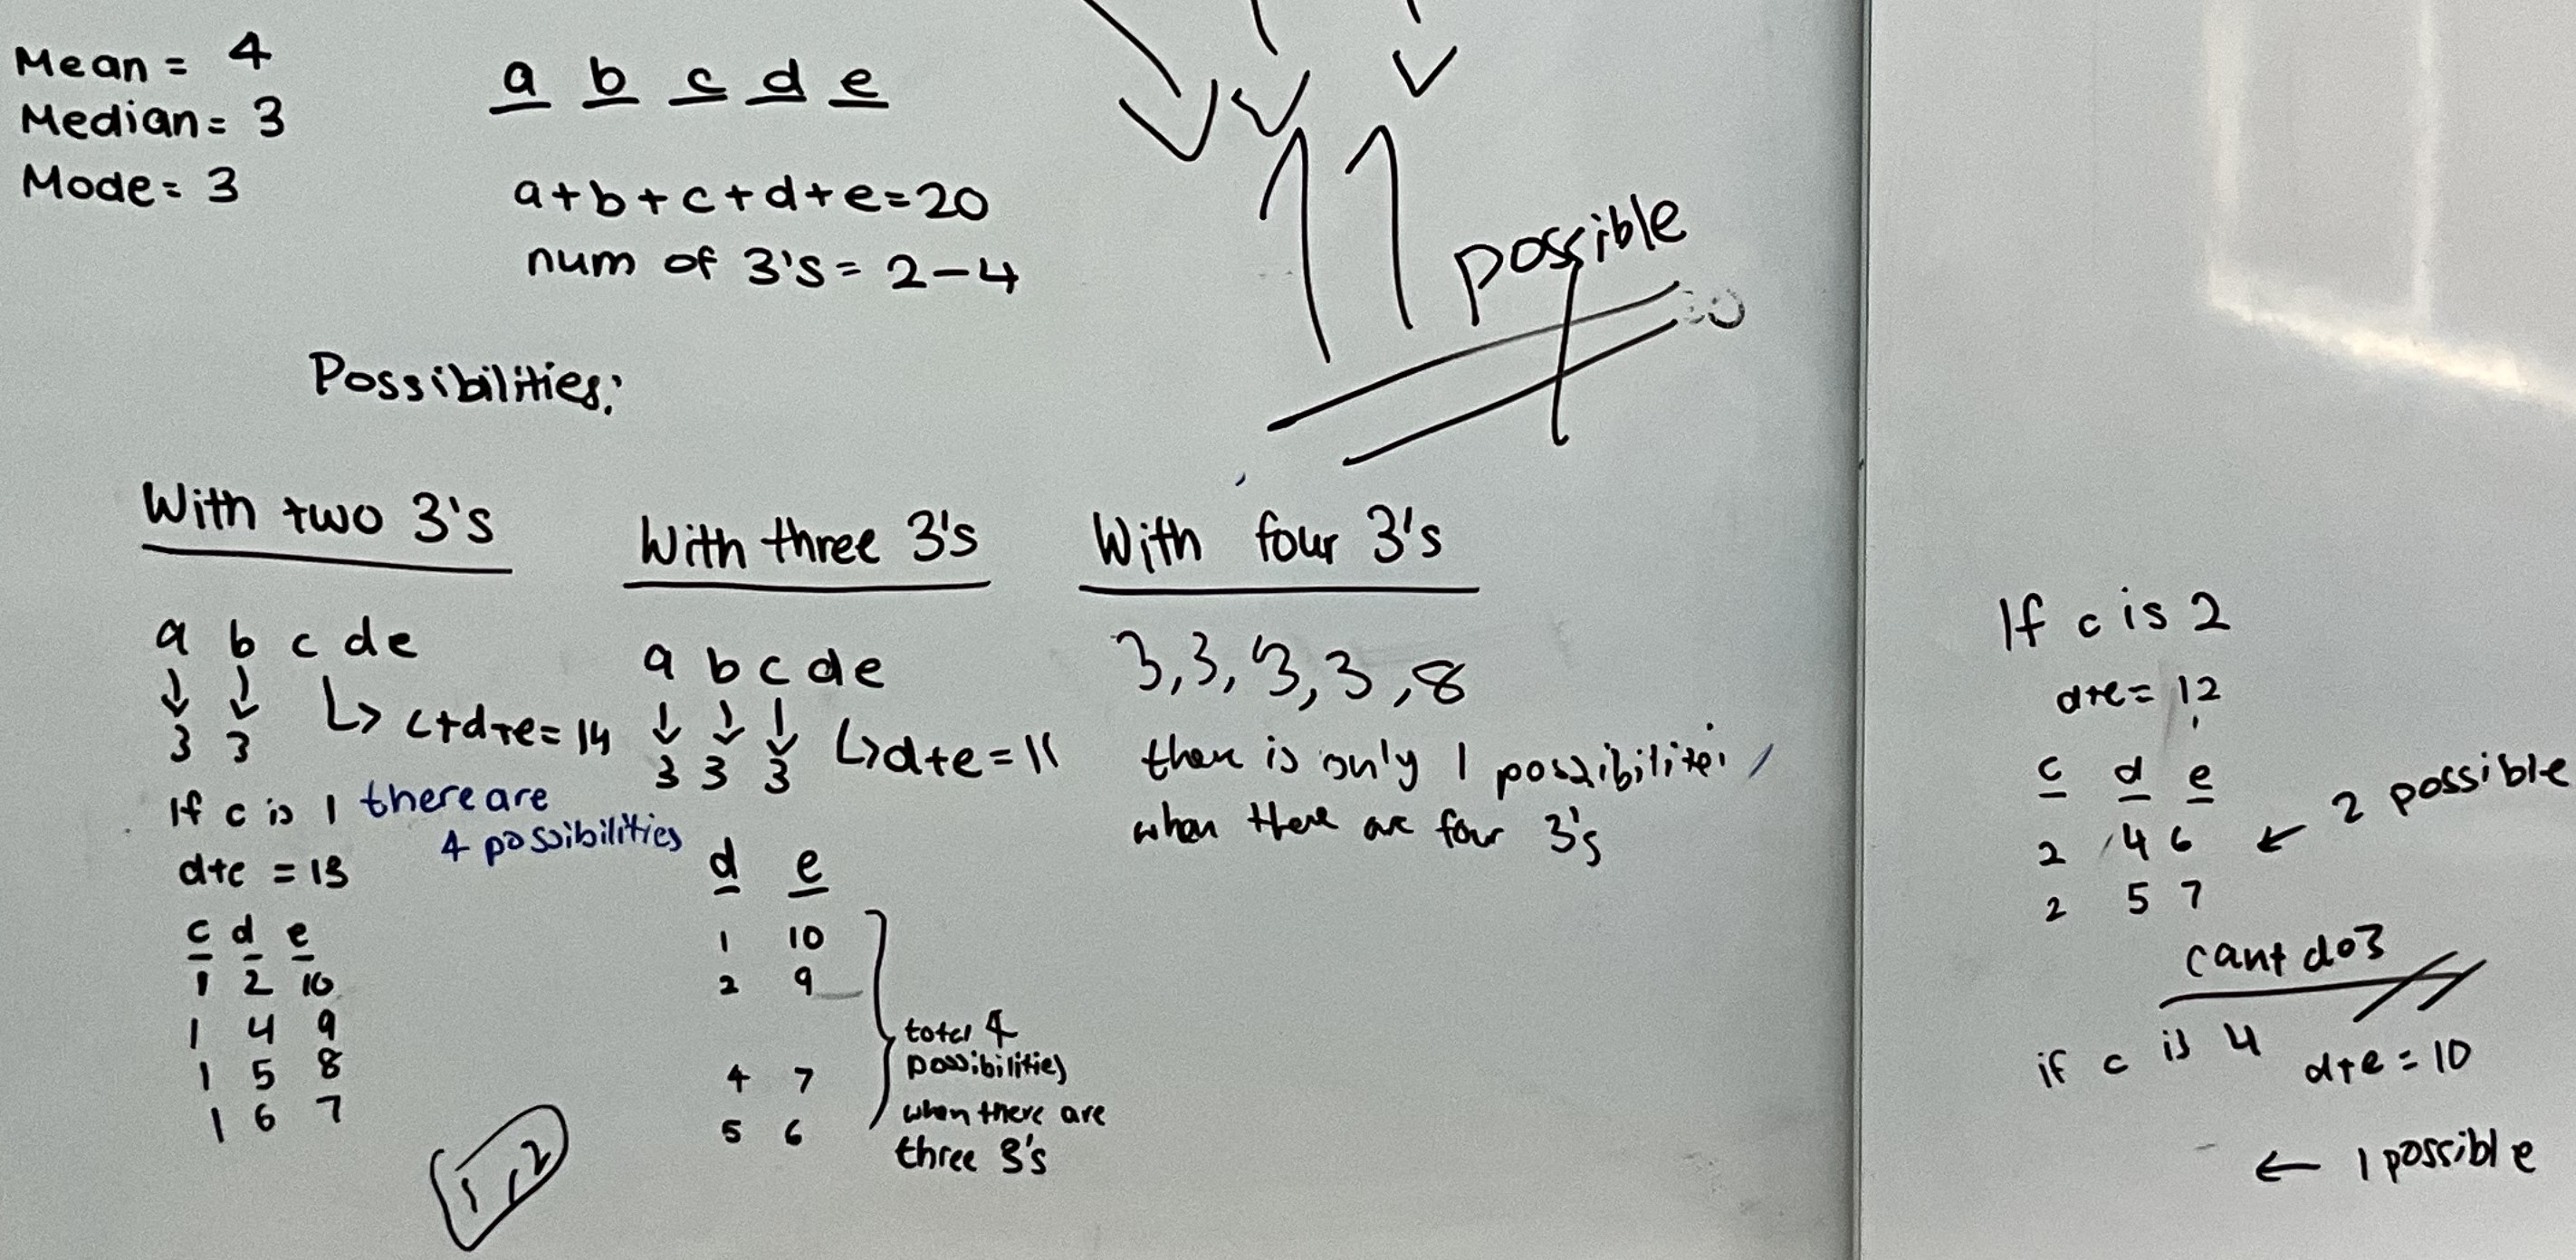 Mean = 4
Median = 3
Mode = 3
a b c d e
a+b+c+d+e=20
num of 3's = 2-4
11 possible
Possibilities:
With two 3's
a b c d e
3 3
c+d+e=14
If c is 1 there are
4 possibilities
d+e = 13
c d e
1 2 10
1 4 9
1 5 8
1 6 7
1,2
With three 3's
a b c d e
3 3 3
d+e=11
d e
1 10
2 9
4 7
5 6
total 4
possibilities
when there are
three 3's
With four 3's
3,3,3,3,8
there is only 1 possibilite
when there are four 3's
If c is 2
d+e= 12
c d e
2 4 6
2 5 7
2 possible
cant do 3
if c is 4 d+e=10
1 possible